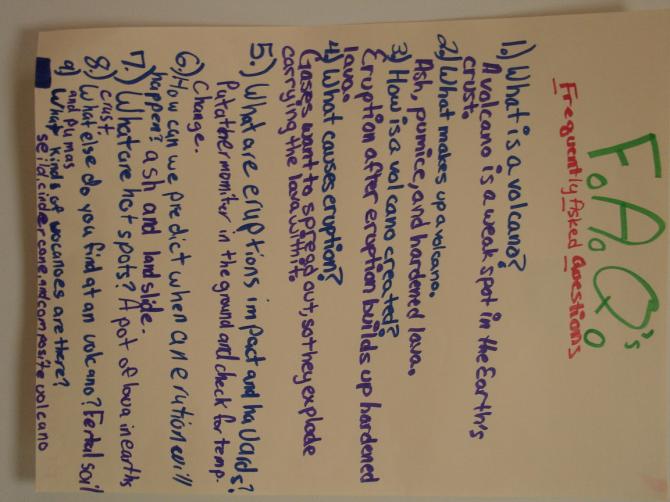 F.A.Q.'s
Frequently Asked Questions
1.) What is a volcano?
A volcano is a weak spot in the Earth's
crust.
2.) What makes up a volcano.
Ash, pumice, and hardened lava.
3.) How is a volcano created?
Eruption after eruption builds up hardened
lava.
4.) What causes eruption?
Gases want to spread out, so they explode
carrying the lava with it.
5.) What are eruptions impact and havards?
Put a thermomitor in the ground and check for temp.
Change.
6.) How can we predict when an erution will
happen? ash and land slide.
7.) What are hot spots? A pot of lava in earths
crust.
8.) What else do you find at an volcano? Fertal soil
and pumas
9) What kinds of vocanoes are there?
seild, cinder cone, and composite volcano